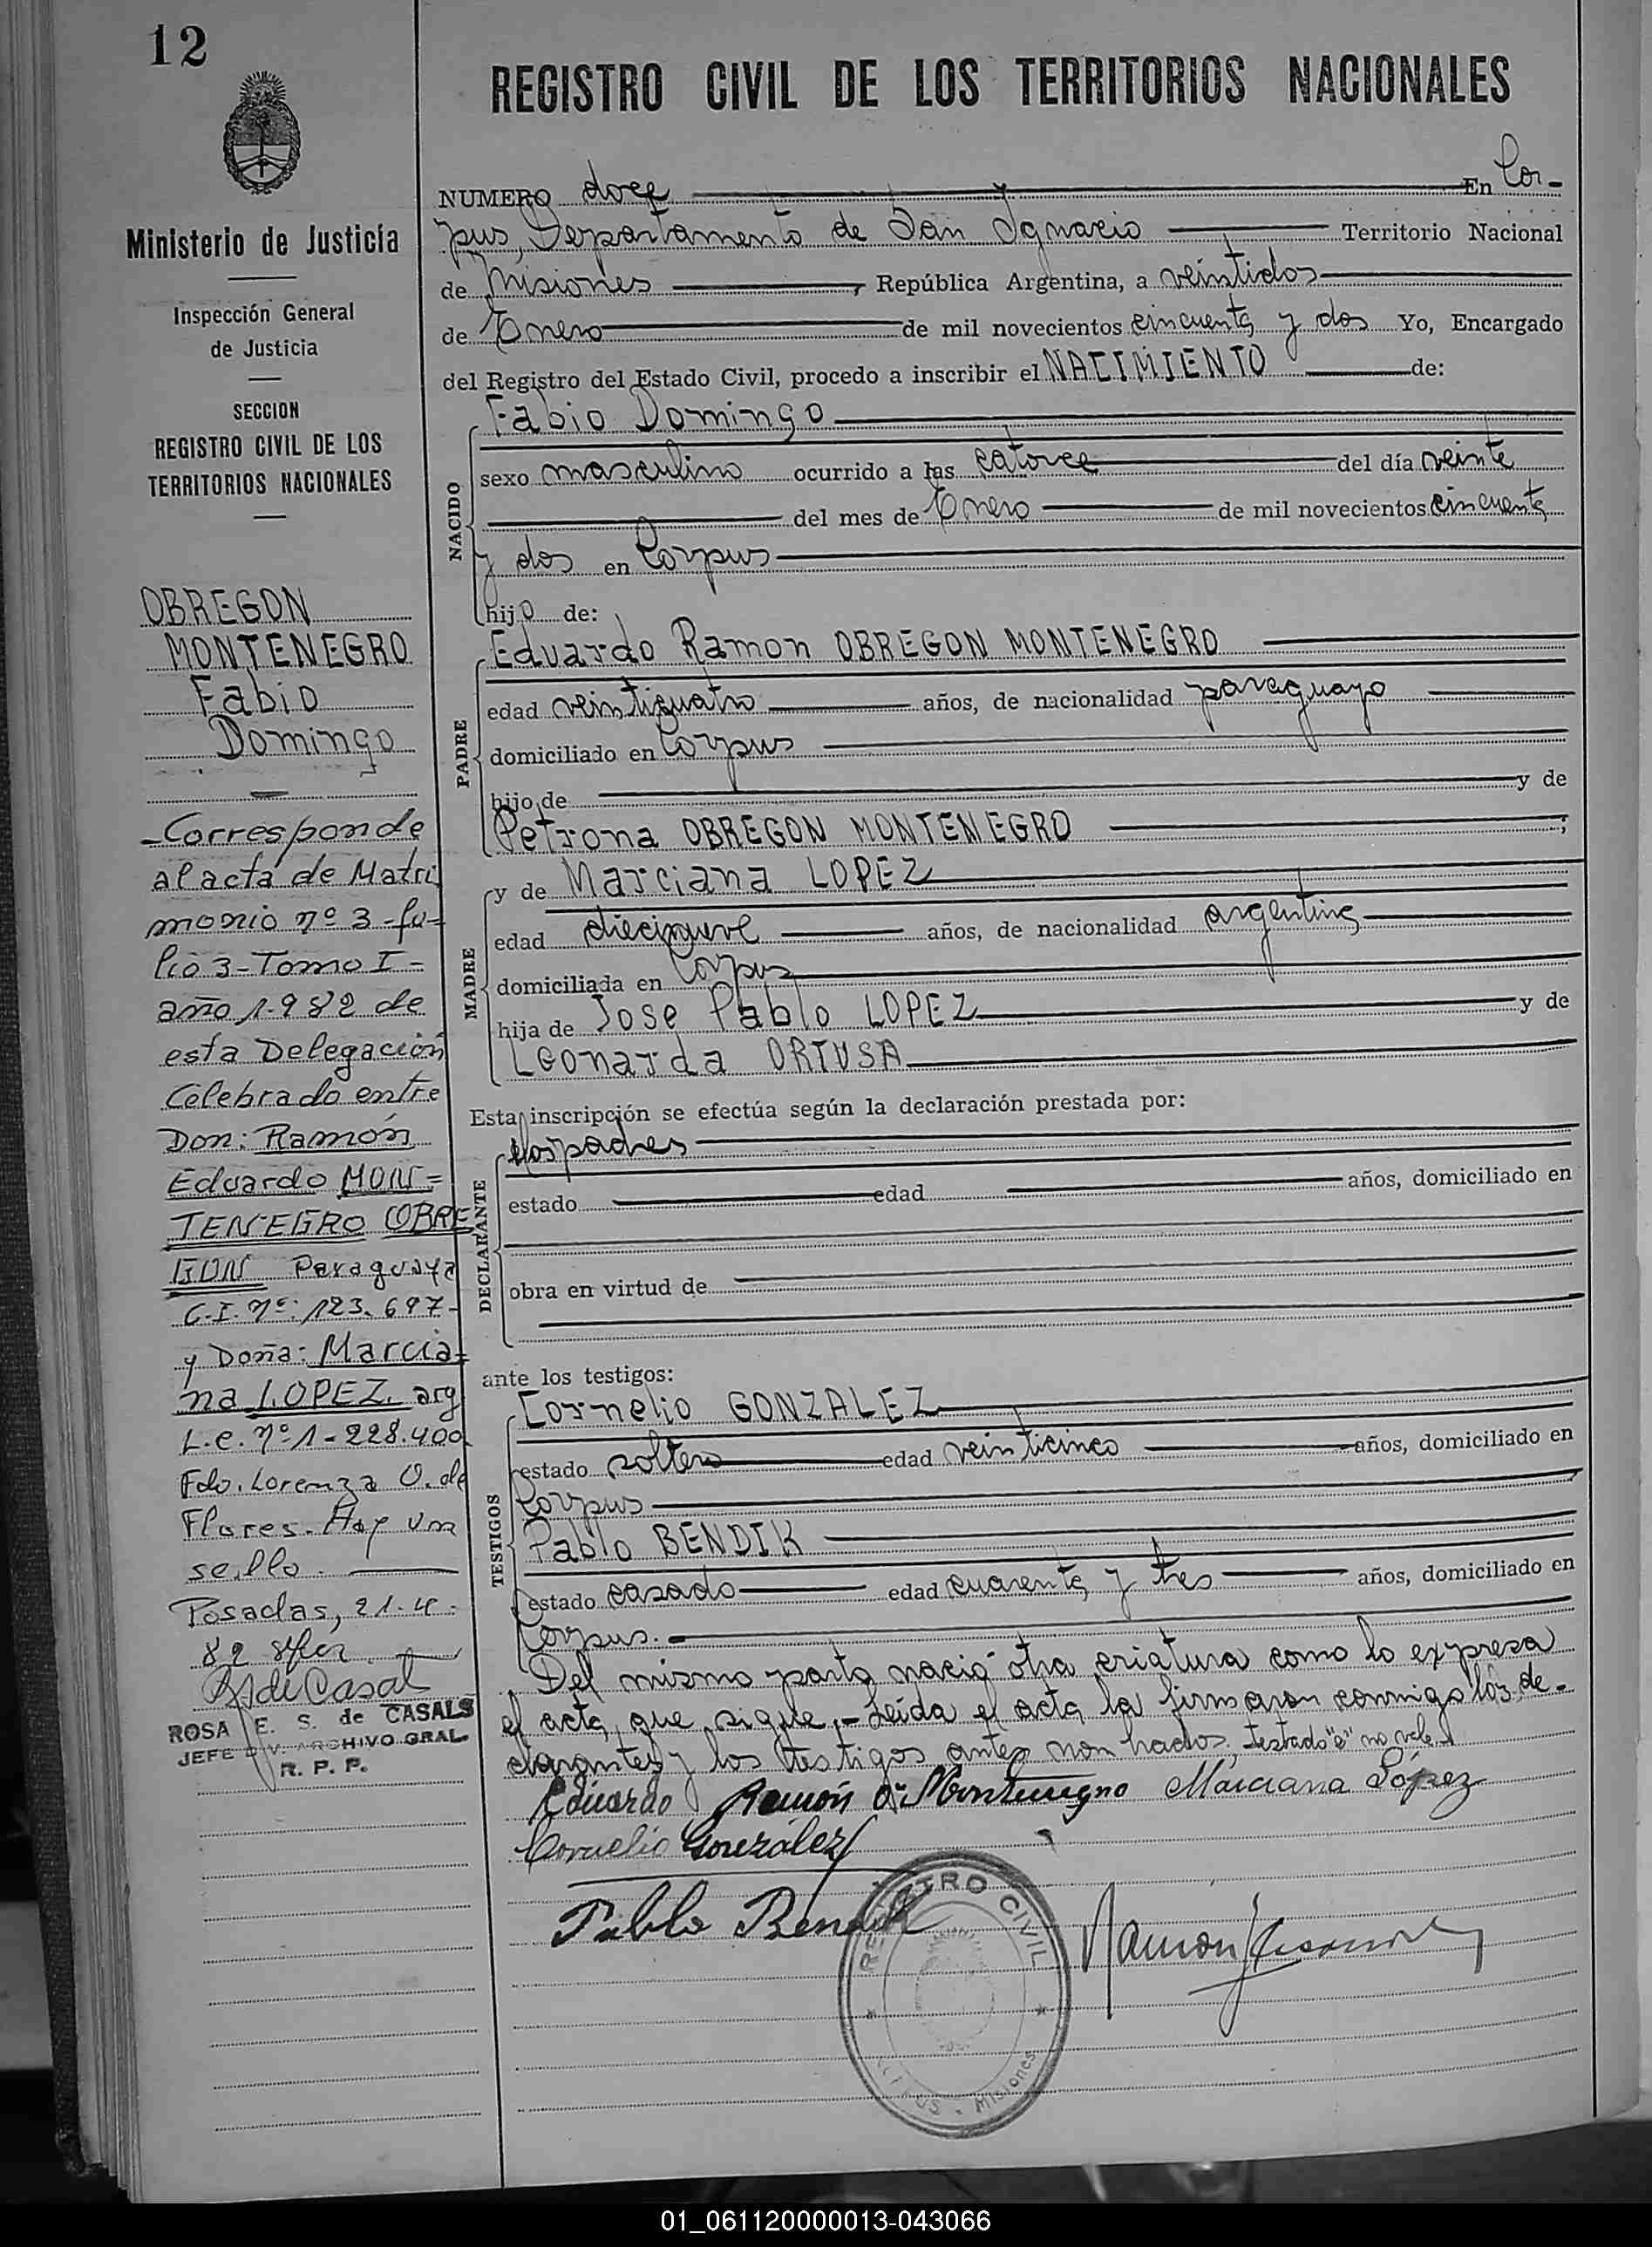 12
REGISTRO CIVIL DE LOS TERRITORIOS NACIONALES
Ministerio de Justicia
Inspección General
de Justicia
SECCION
REGISTRO CIVIL DE LOS
TERRITORIOS NACIONALES
OBREGON
MONTENEGRO
Fabio
Domingo
-Corresponde
al acta de Matri
monio nº 3-fo-
lio 3-Tomo I-
año 1.982 de
esta Delegación
Celebrado entre
Don: Ramón
Eduardo MON=
TENEGRO OBRE
GON Paraguayo
C.I. nº: 123.697-
y Doña: Marcia-
na LOPEZ. arg
L.C. nº 1-228.400
Fdo. Lorenza O. de
Flores. Hay un
sello.
Posadas, 21.4.
82
ROSA E. S. de CASALS
JEFE DIV. ARCHIVO GRAL.
R. P. P.
NUMERO doce En Cor-
pus, Departamento de San Ignacio Territorio Nacional
de Misiones, República Argentina, a veintidos
de Enero de mil novecientos cincuenta y dos Yo, Encargado
del Registro del Estado Civil, procedo a inscribir el NACIMIENTO de:
NACIDO
Fabio Domingo
sexo masculino ocurrido a las catorce del día veinte
del mes de Enero de mil novecientos cincuenta
y dos en Corpus
hijo de:
PADRE
Eduardo Ramon OBREGON MONTENEGRO
edad veinticuatro años, de nacionalidad paraguayo
domiciliado en Corpus
hijo de y de
Petrona OBREGON MONTENEGRO ;
MADRE
y de Marciana LOPEZ
edad diecinueve años, de nacionalidad argentina
domiciliada en Corpus
hija de Jose Pablo LOPEZ y de
Leonarda ORTUSA
Esta inscripción se efectúa según la declaración prestada por:
DECLARANTE
los padres
estado edad años, domiciliado en
obra en virtud de
ante los testigos:
TESTIGOS
Cornelio GONZALEZ
estado soltero edad veinticinco años, domiciliado en
Corpus
Pablo BENDIK
estado casado edad cuarenta y tres años, domiciliado en
Corpus.-
Del mismo parto nació otra criatura como lo expresa
el acta que sigue.- Leída el acta la firmaron conmigo los de-
clarantes y los testigos antes nombrados, testado "e" no vale
Eduardo Ramón O. Montenegro Marciana López
Cornelio González
Pablo Bendik
REGISTRO CIVIL
CORPUS - Misiones
Ramón
01_061120000013-043066